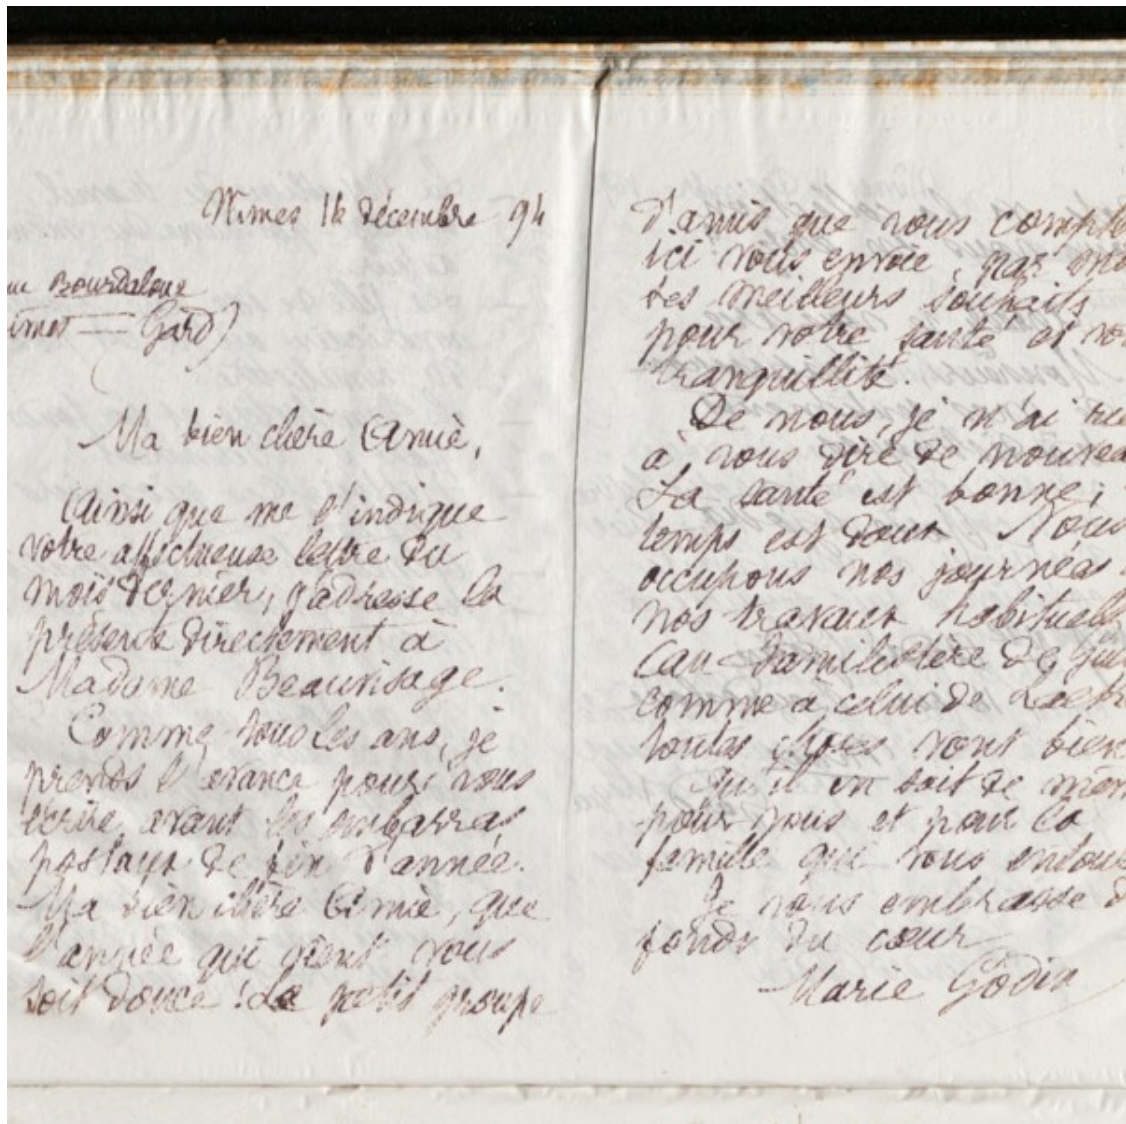 Nimes 14 décembre 94
Bourdaloue
Gard)
Ma bien chère Amie,
Ainsi que me l'indique
votre affectueuse lettre du
mois dernier, j'adresse la
présente directement à
Madame Beauvisage.
Comme tous les ans, je
prends l'avance pour vous
écrire, avant les embarras
postaux de fin d'année.
Ma bien chère Amie, que
l'année qui vient vous
soit douce ! Le petit groupe
d'amis que vous
ici vous envoie, par
ses meilleurs souhaits
pour votre santé et
tranquillité.
De nous, je n'ai
à vous dire de
La santé est bonne ;
temps est doux. Nous
occupons nos journées
nos travaux
Au familistère de
comme à celui de
toutes choses vont bien
Qu'il en soit de
pour vous et pour la
famille qui vous
Je vous embrasse
fonds du cœur
Marie Godin